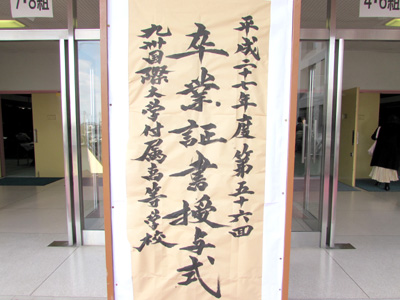 平成二十七年度第五十六回
卒業証書授与式
九州国際大学付属高等学校
7・8組
4・6組